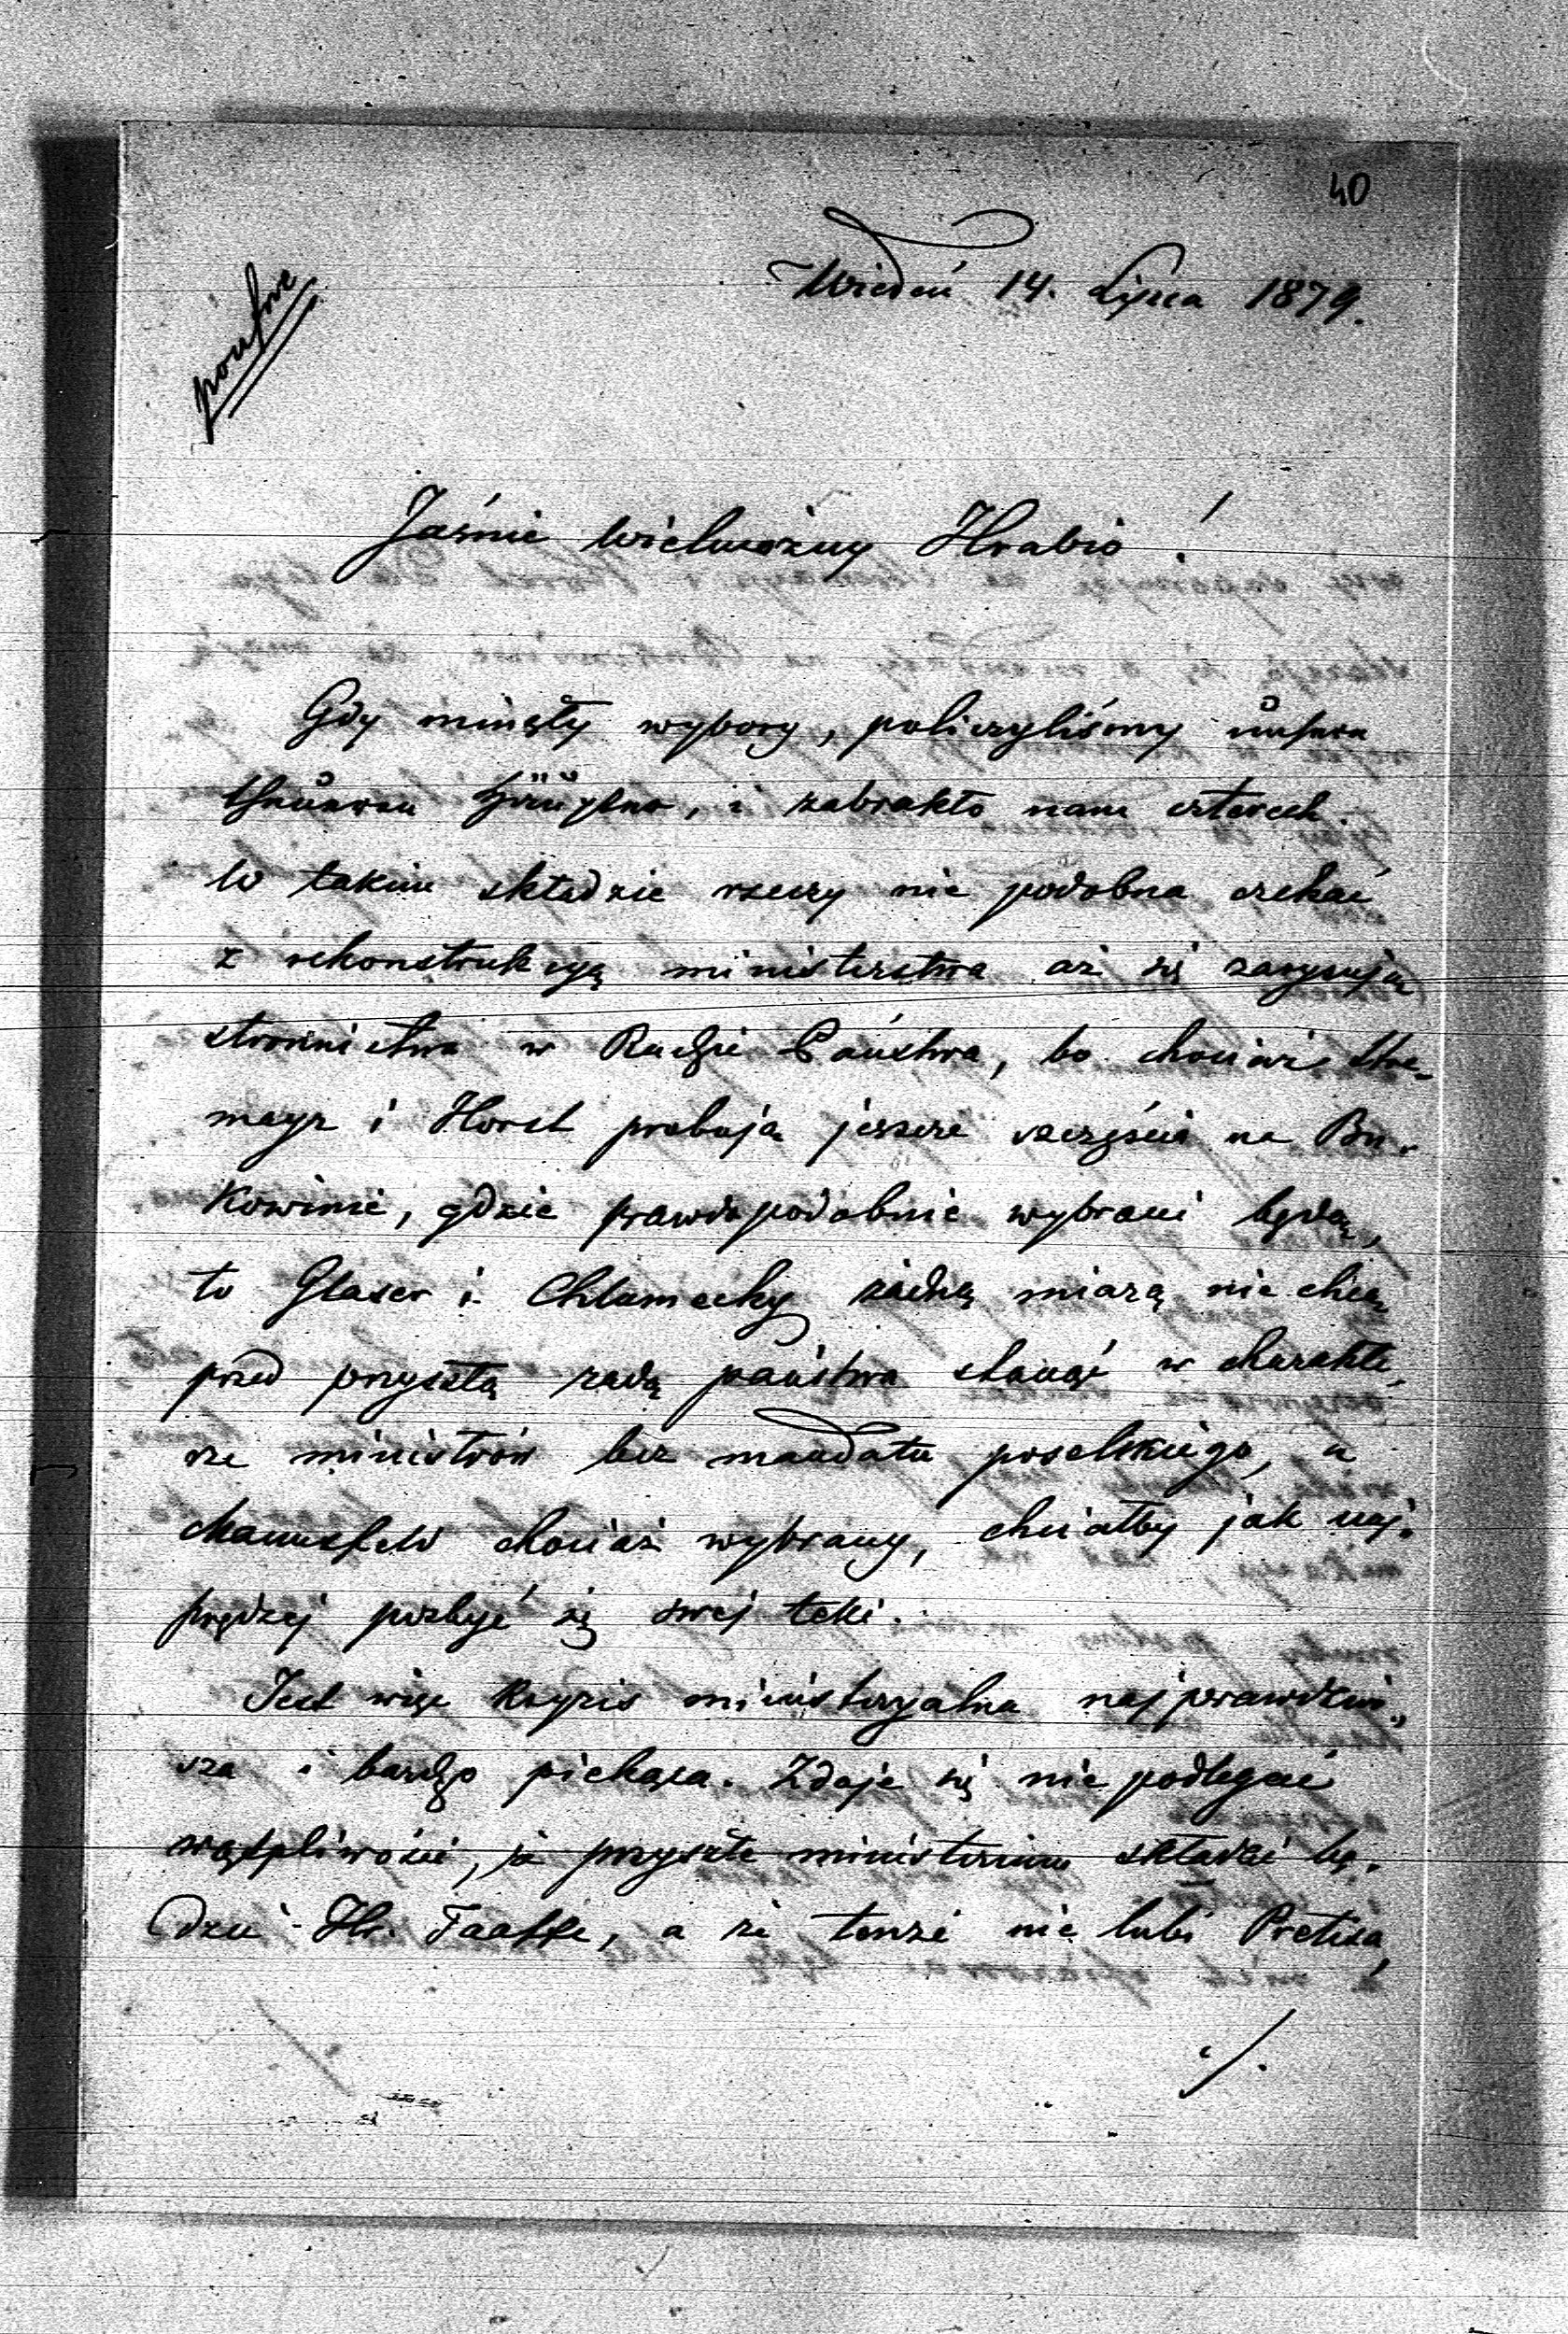 40
Wiedeń 14. Lipca 1879.
poufne
Jaśnie Wielmożny Hrabio!
Gdy minęły wybory, policzyliśmy unsere
theueren Häupter, i zabrakło nam czterech.
W takim składzie rzeczy nie podobna czekać
z rekonstrukcyą ministerstwa aż się zarysują
stronnictwa w Radzie Państwa, bo chociaż Stre„
mayr i Horst probują jeszcze szczęścia na Bu„
kowinie, gdzie prawdopodobnie wybrani będą,
to Glaser i Chlumecky żadną miarą nie chcą
przed przyszłą radą państwa stanąć w charakte„
rze ministrów bez mandatu poselskiego, a
Mannsfeld chociaż wybrany, chciałby jak naj„
prędzej pozbyć się swej teki.
Jest więc kryzis ministeryalna najprawdziw„
sza i bardzo piekąca. Zdaje się nie podlegać
wątpliwości, że przyszłe ministerium składać bę„
dzie Hr. Taaffe, a że tenże nie lubi Pretisa,
./.